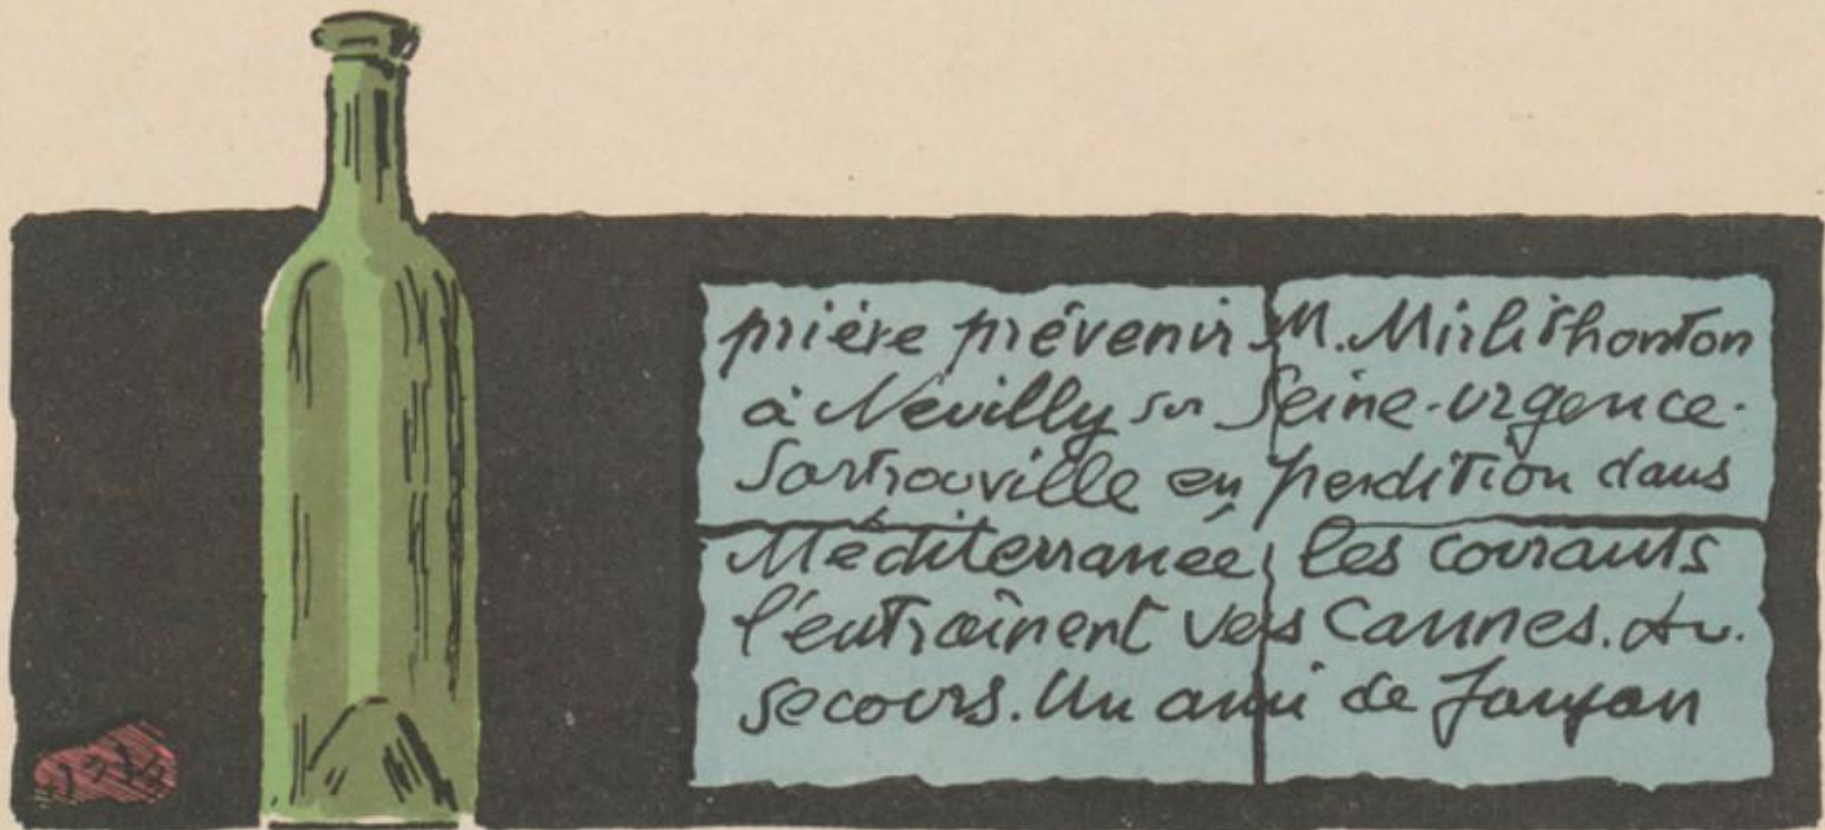 prière prévenir M. Mirlithonton
à Neuilly sur Seine-urgence.
Sartrouville en perdition dans
Méditerranée, les courants
l'entraînent vers Cannes. Au.
secours. Un ami de